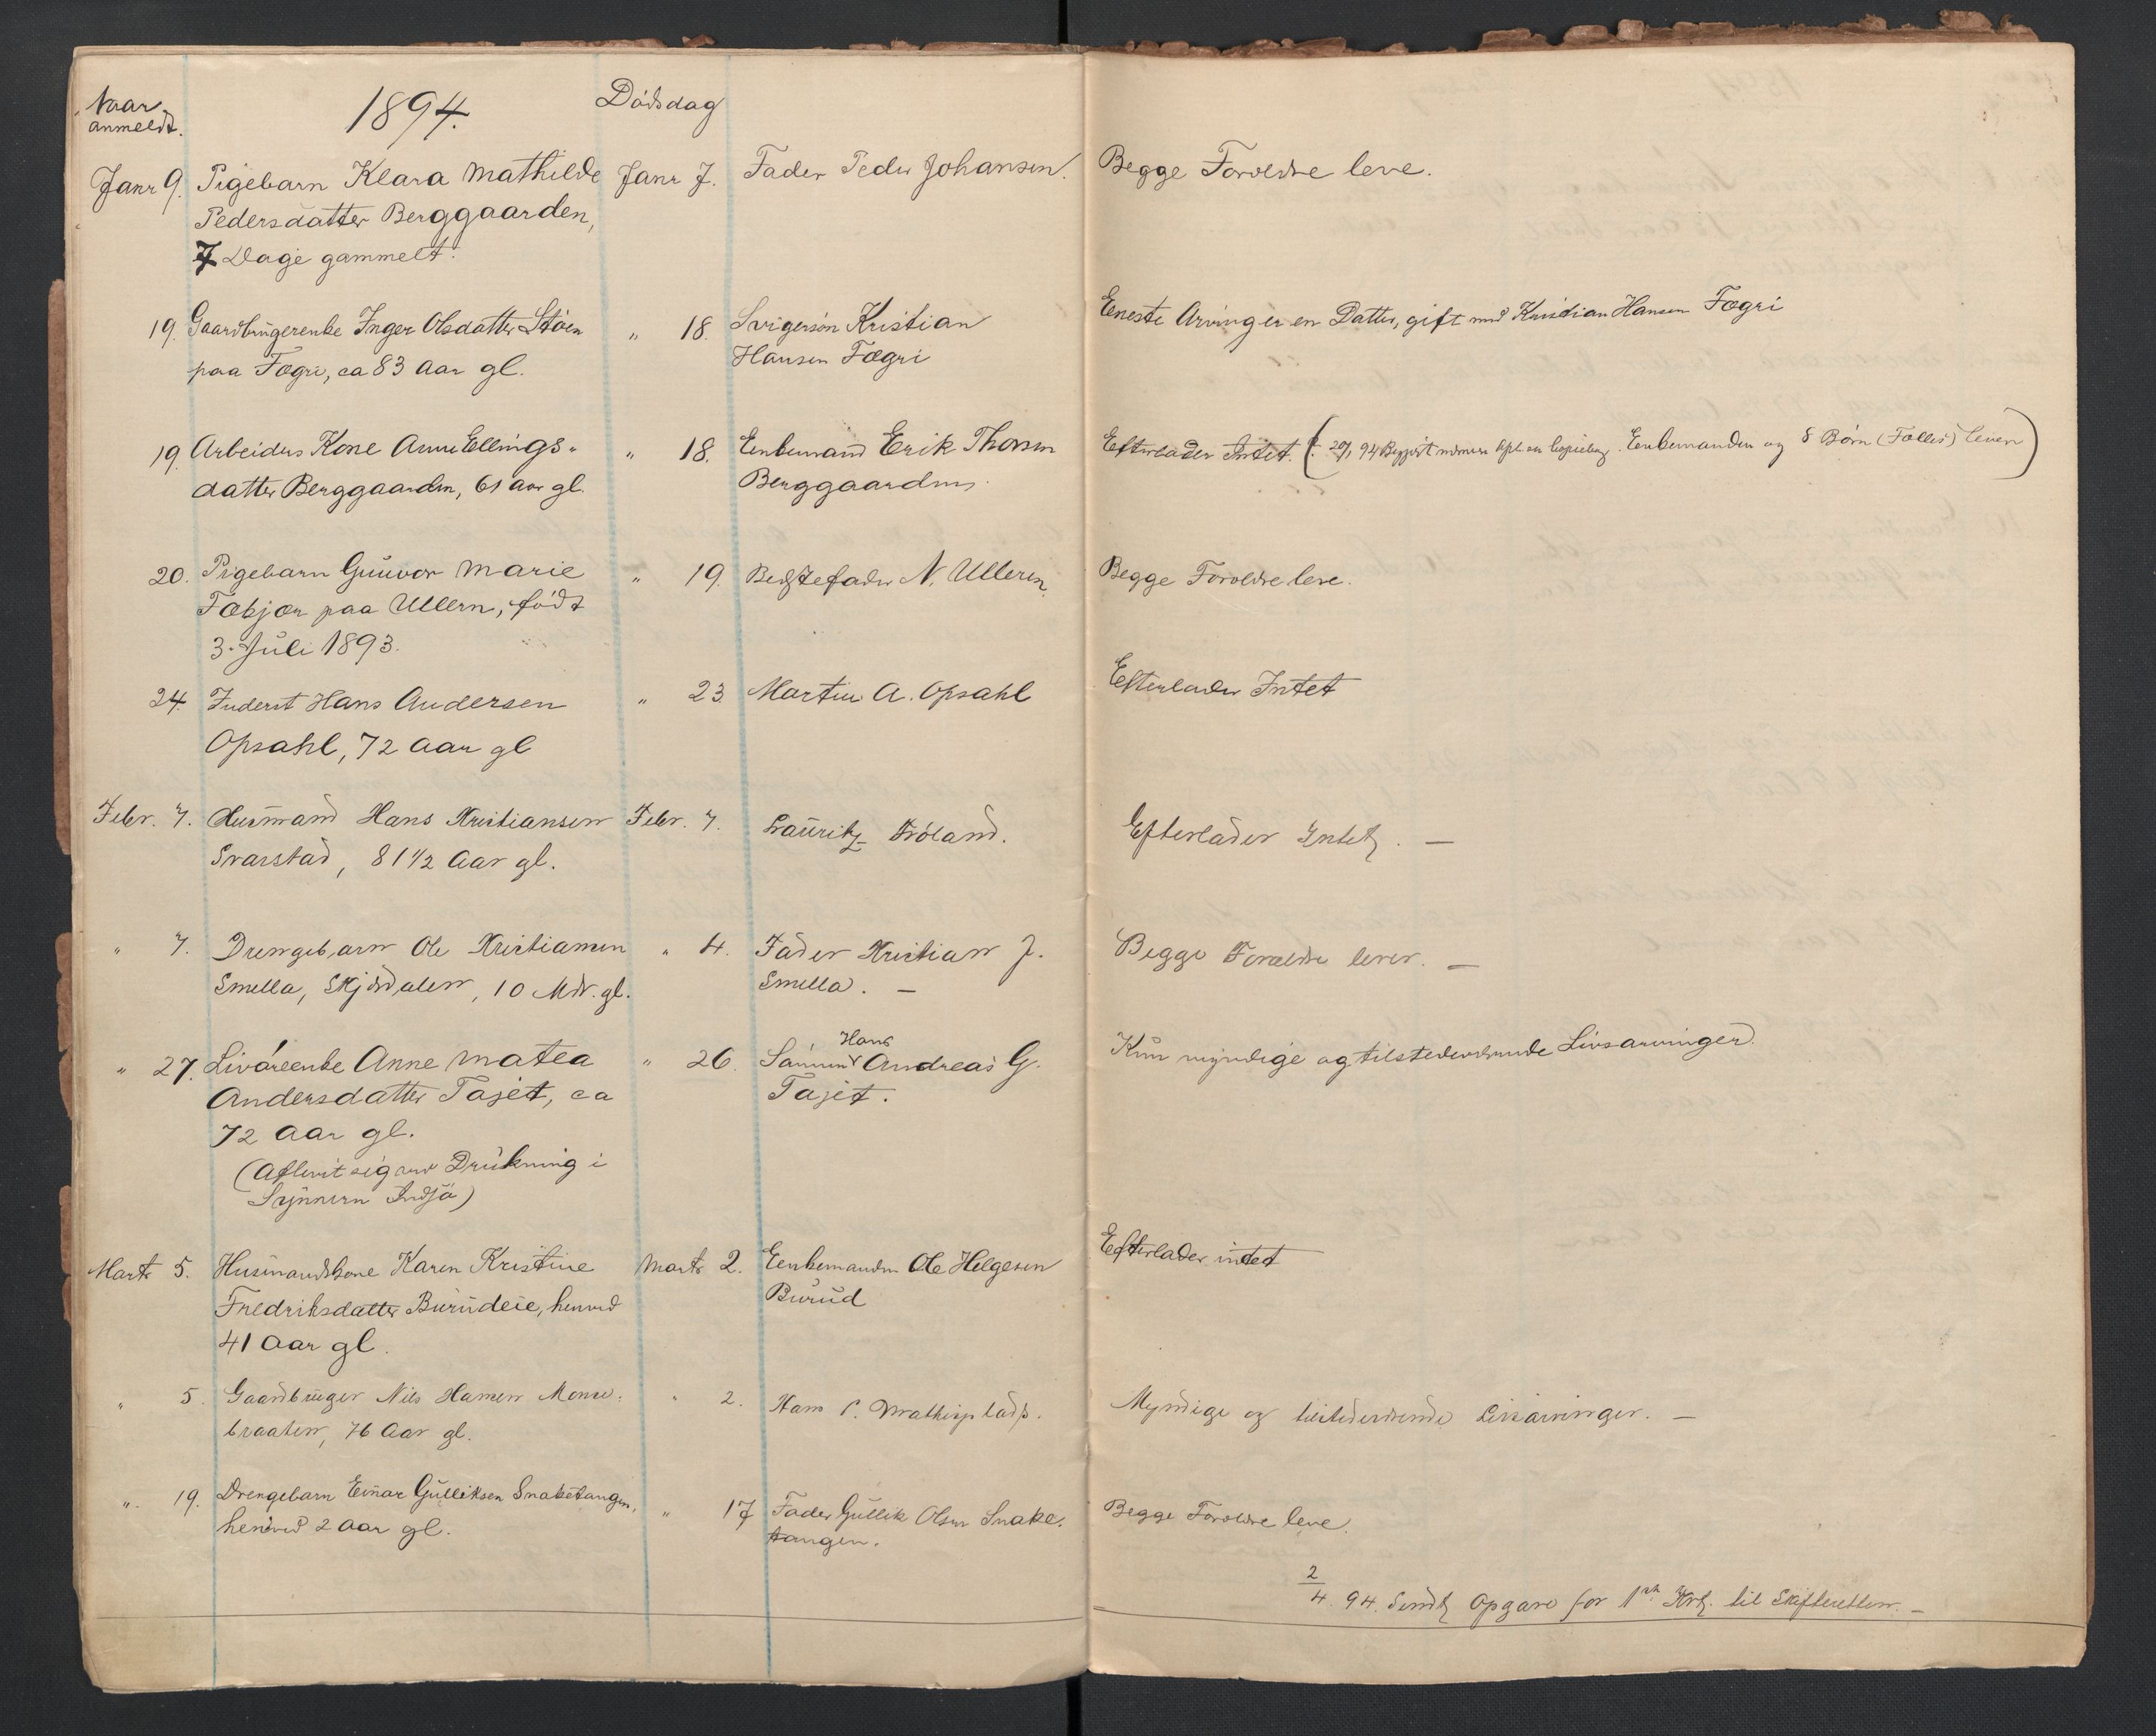 Naar
anmeldt.
1894.
Dödsdag
Janr 9. Pigebarn Klara Mathilde Janr 7. Fader Peder Johansen. Begge Foroldre leve.
Pedersdatter Berggaarden,
7 Dage gammelt.
19. Gaardbrugerenke Inger Olsdatter Stöen " 18. Svigersön Kristian Eneste Arving er en Datter, gift med Kristian Hansen Fægri
paa Fægri, ca 83 Aar gl. Hansen Fægri
19. Arbeiders Kone Anne Ellings- " 18. Enkemand Erik Thorsen Efterlader Intet. ( 94 Enkemanden og 8 Börn (Fælles) lever)
datter Berggaarden, 61 aar gl. Berggaarden
20. Pigebarn Gunvor Marie " 19. Bedstefader N. Ulleren Begge Foroldre leve.
Fæbjør paa Ullern, född
3. Juli 1893.
24. Inderst Hans Andersen " 23 Martin A. Opsahl Efterlader Intet
Opsahl, 72 Aar gl
Febr. 7. Husmand Hans Kristiansen Febr. 7. Lauritz Fröland. Efterlader Intet. —
Svarstad, 81 1/2 Aar gl.
" 7. Drengebarn Ole Kristiansen " 4. Fader Kristian J. Begge Forældre lever. —
Smella, Skjørdalen, 10 Mdr. gl. Smella. —
" 27. Livöreenke Anne Matea " 26. Sönnen Hans Andreas G. Kun myndige og tilstedeværende Livsarvinger.
Andersdatter Tajet, ca Tajet.
72 Aar gl.
(Aflivet sig ved Drukning i
Synnern Indsjö)
Marts 5. Husmandskone Karen Kristine Marts 2. Enkemanden Ole Helgesen Efterlader intet
Fredriksdatter Burudeie, henved Burud
41 Aar gl.
" 5. Gaardbruger Nils Hansen Monse- " 2. Hans P. Mathisplads. Myndige og tilstedeværende Livsarvinger. —
braaten, 76 Aar gl.
" 19. Drengebarn Einar Gulliksen Snaketangen, " 17 Fader Gullik Olsen Snake- Begge Foroldre leve.
henved 2 Aar gl. tangen.
2/4 94. Sendt Opgave for 1ste Kvt. til Skifteretten. —